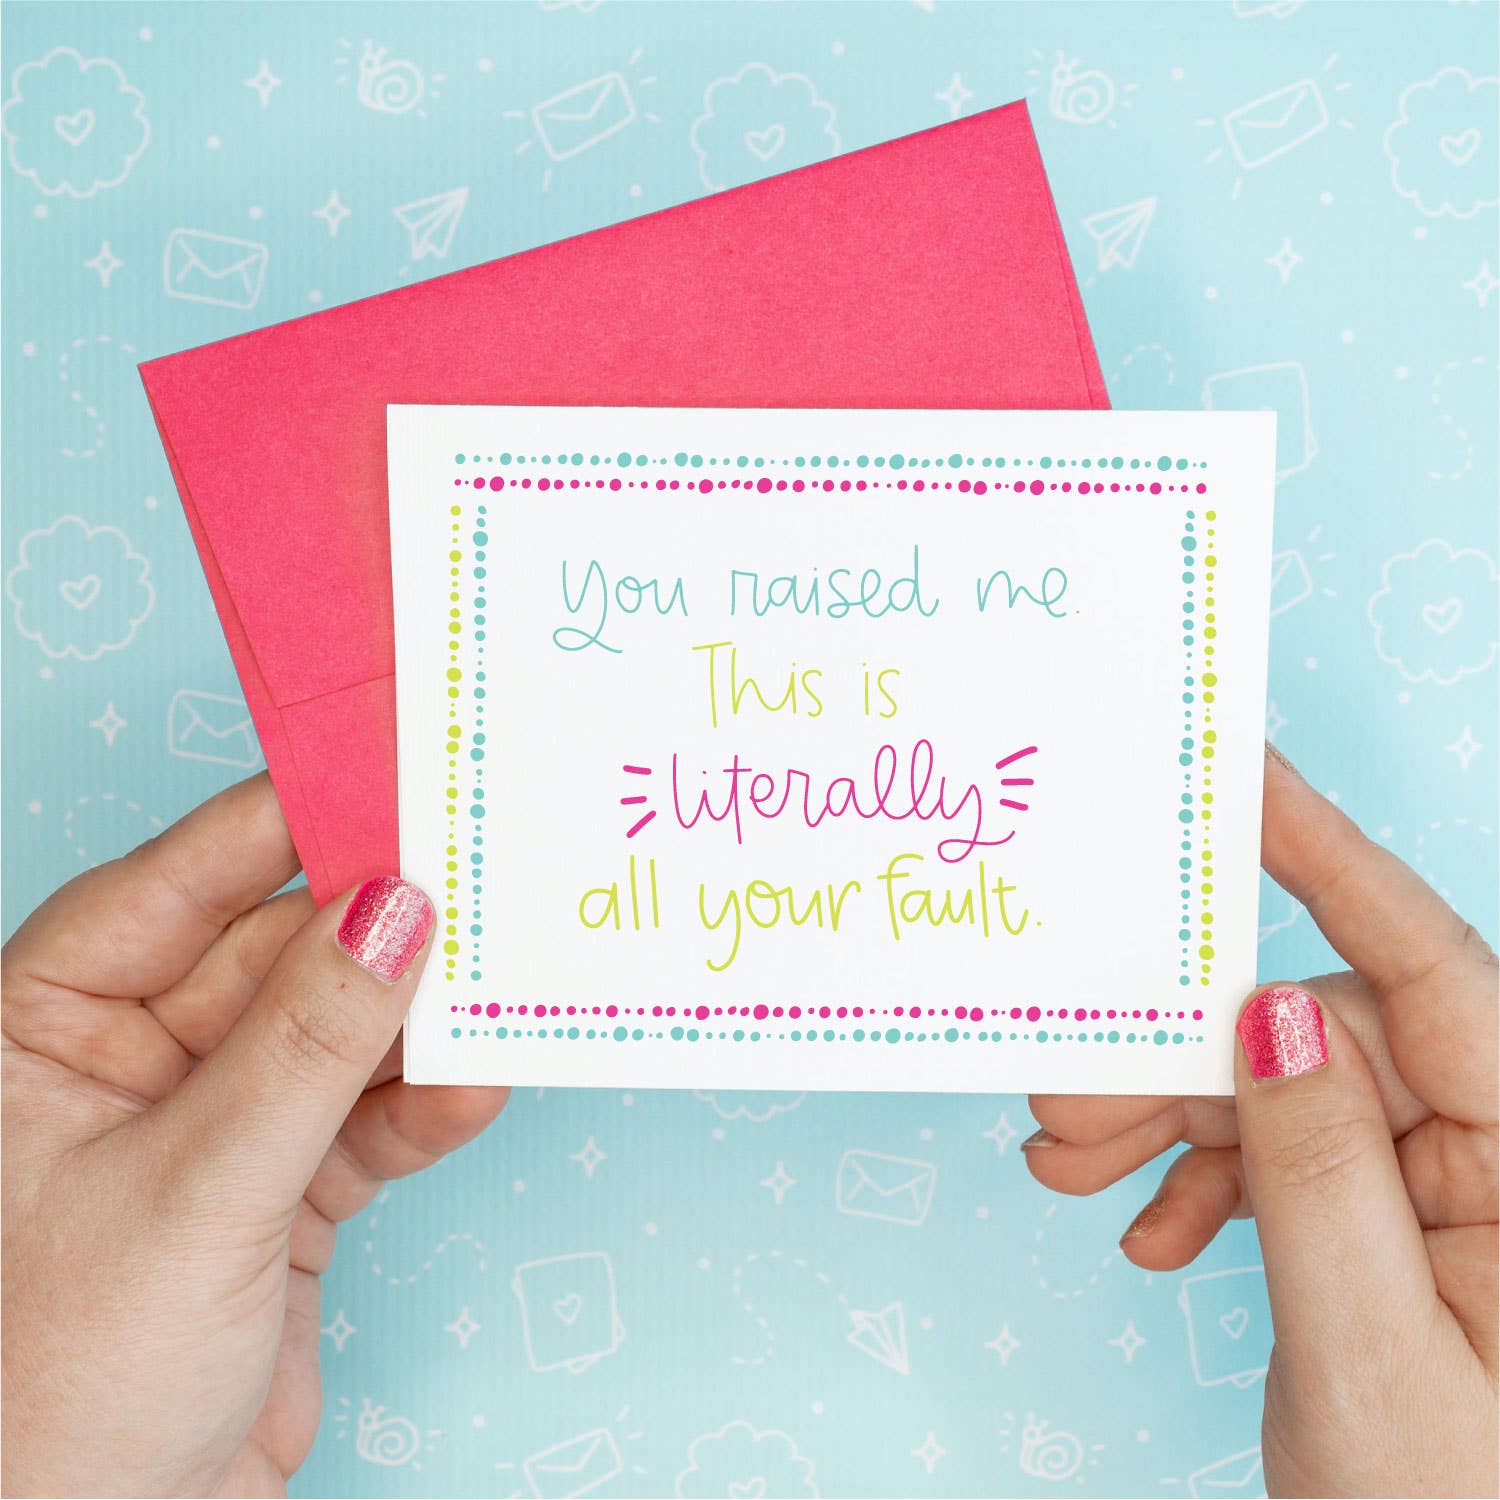 You raised me.
This is
literally
all your fault.